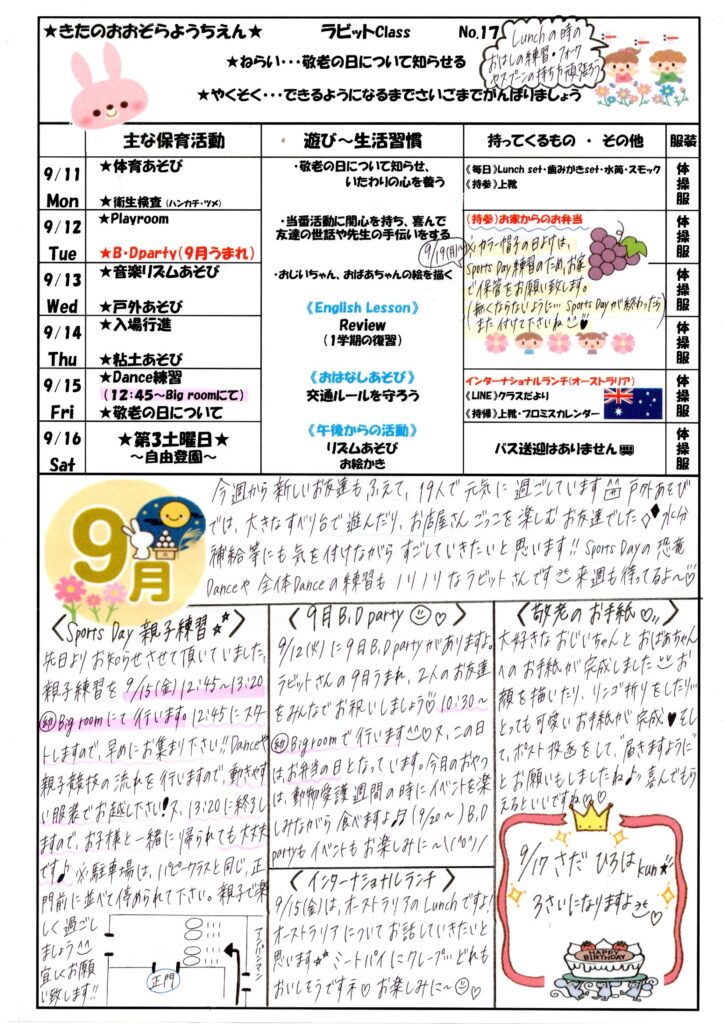 ★きたのおおぞらようちえん★ ラビットClass No.17
★ねらい・・・敬老の日について知らせる
★やくそく・・・できるようになるまでさいごまでがんばりましょう
Lunchの時の
おはしの練習・フォーク
やスプーンの持ち方頑張ろう
主な保育活動 遊び～生活習慣 持ってくるもの ・ その他 服装
9/11
Mon
★体育あそび
★衛生検査(ハンカチ・ツメ)
・敬老の日について知らせ、
いたわりの心を養う
《毎日》Lunch set・歯みがきset・水筒・スモック
《持参》上靴
体操服
9/12
Tue
★Playroom
★B・Dparty(9月うまれ)
・当番活動に関心を持ち、喜んで
友達の世話や先生の手伝いをする
《持参》お家からのお弁当
体操服
9/19(月)～
※カラー帽子の日よけは、
Sports Day練習のため、お家
で保管をお願い致します。
(無くならないように… Sports Dayが終わったら
また付けて下さいね
9/13
Wed
★音楽リズムあそび
★戸外あそび
・おじいちゃん、おばあちゃんの絵を描く
体操服
9/14
Thu
★入場行進
★粘土あそび
《English Lesson》
Review
(1学期の復習)
体操服
9/15
Fri
★Dance練習
(12:45～Big roomにて)
★敬老の日について
《おはなしあそび》
交通ルールを守ろう
インターナショナルランチ(オーストラリア)
《LINE》クラスだより
《持帰》上靴・プロミスカレンダー
体操服
9/16
Sat
★第3土曜日★
～自由登園～
《午後からの活動》
リズムあそび
お絵かき
バス送迎はありません
体操服
9月
今週から新しいお友達もふえて、19人で元気に過ごしています 戸外あそび
では、大きなすべり台で遊んだり、お店屋さんごっこを楽しむお友達でした 水分
補給等にも気を付けながらすごしていきたいと思います!! Sports Dayの恐竜
Danceや全体Danceの練習もノリノリなラビットさんです 来週も待ってるよ～♡
〈Sports Day 親子練習〉
先日よりお知らせさせて頂いていました、
親子練習を 9/15(金)12:45～13:20
幼Big roomにて行います。12:45にスター
トしますので、早めにお集まり下さい!! Danceや
親子競技の流れを行いますので、動きやす
い服装でお越し下さい! 又、13:20に終了し
ますので、お子様と一緒に帰られても大丈夫
です♪ ※駐車場は、パピークラスと同じ、正
門前に並べて停められて下さい。親子で楽
しく過ごし
ましょう^^
宜しくお願
い致します!!
正門
アンパンマン
〈9月B.D party ♡〉
9/12(火)に9月B.D partyがありますよ。
ラビットさんの9月うまれ、2人のお友達
をみんなでお祝いしましょう♡ 10:30～
幼Big roomで行います 又、この日
はお弁当の日となっています。今月のおやつ
は、動物愛護週間の時にイベントを楽
しみながら食べますよ♫ (9/20～) B.D
partyもイベントもお楽しみに～\(^o^)/
〈インターナショナルランチ〉
9/15(金)は、オーストラリアのLunchですよ!
オーストラリアについてお話していきたいと
思います ミートパイにクレープ… どれも
おいしそうですネ♡ お楽しみに～♡
〈敬老のお手紙♡〉
大好きなおじいちゃんとおばあちゃん
へのお手紙が完成しました お
顔を描いたり、リンゴ折りをしたり…
とっても可愛いお手紙が完成♥そし
て、ポスト投函をして、"届きますように"
とお願いもしましたね♪ 喜んでもら
えるといいですね♡
9/17 さだ ひろは kun★
3さいになりますよ♡
HAPPY
BIRTHDAY